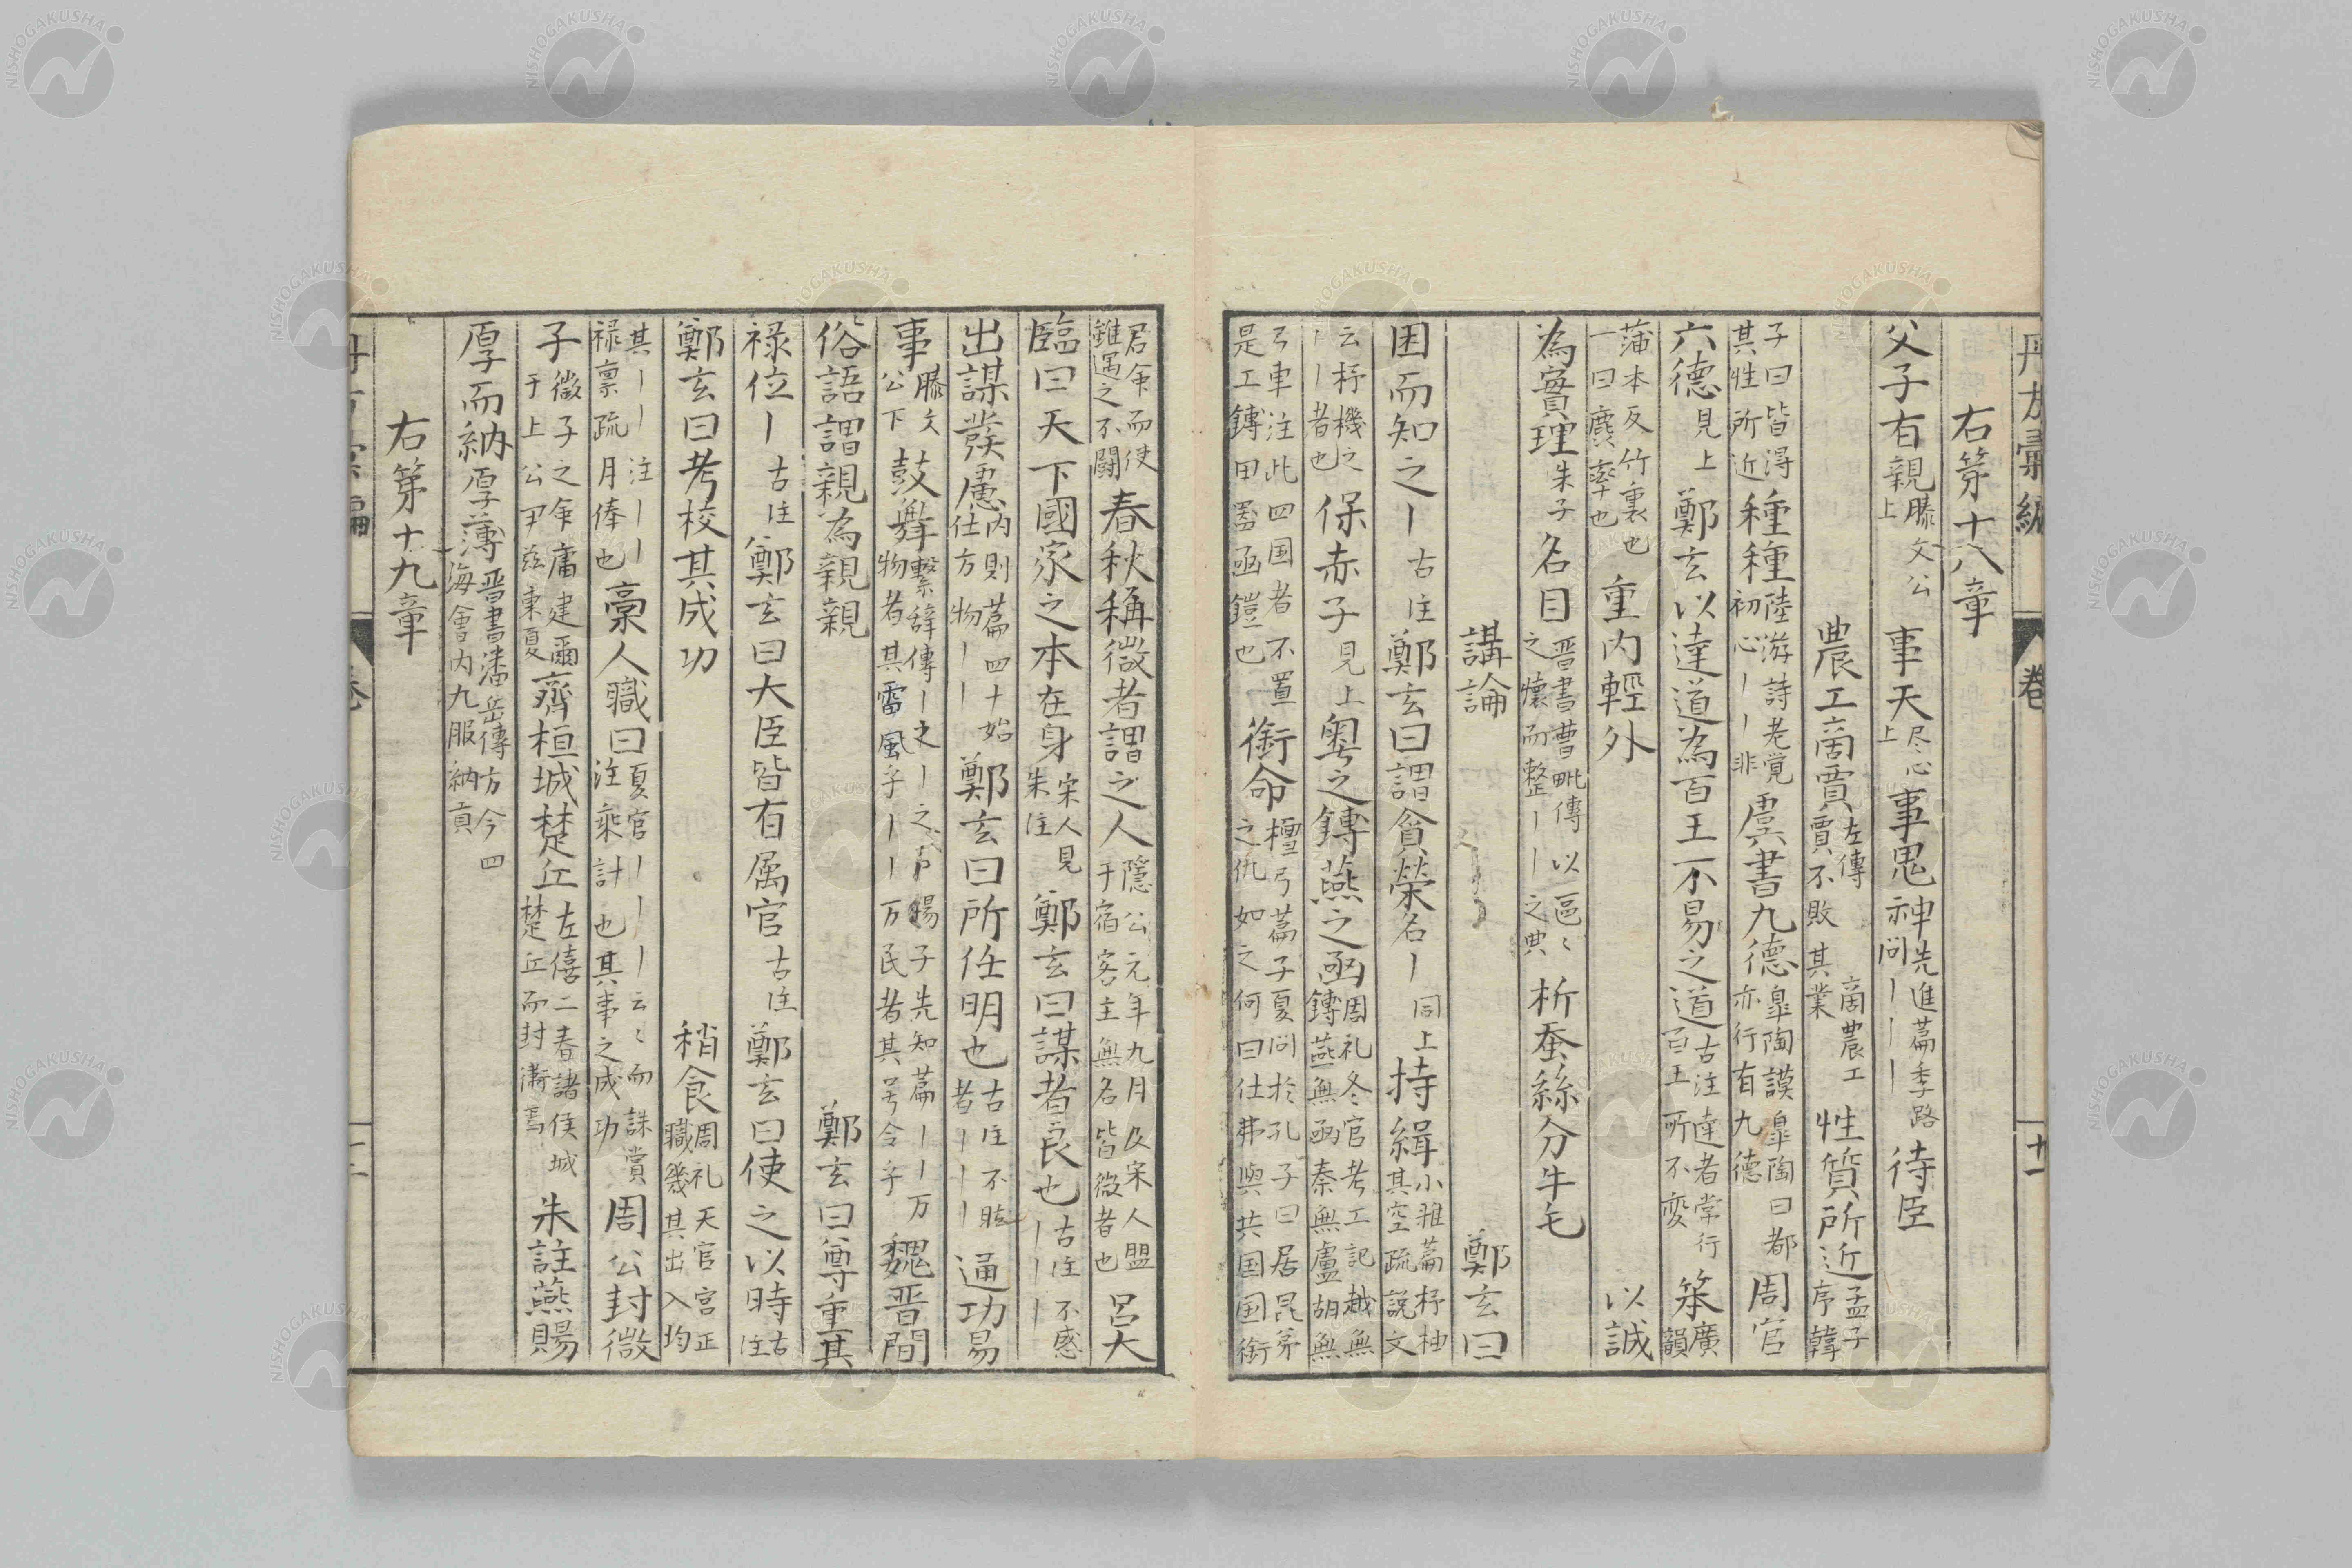 右第十八章
父子有親 滕文公上 事天 尽心上 事鬼神 先進篇季路問｜｜｜ 待臣
農工商賈 左傳 商農工賈不敗其業 性質所近 孟子序韓
子曰皆淂其性所近 種種 陸游詩老覚初心｜｜非 虞書九德 皐陶謨皐陶曰都亦行有九德 周官
六德 見上 鄭玄以達道為百王不易之道 古注達者常行百王所不変 笨 廣韻
蒲本反竹裏也一曰麁率也 重内輕外 以誠
為實理 朱子 名目 晋書曹毗傳以區〻之懷而整｜｜之典 析蚕絲分牛毛
講論 鄭玄曰
困而知之｜ 古注 鄭玄曰謂貪荣名｜ 同上 持緝 小雅篇杼柚其空疏説文
云杼機之｜｜者也 保赤子 見上 粤之鏄燕之凾 周礼冬官考工記越無鏄燕無凾秦無盧胡無
弓車注此四国者不置是工鏄田噐凾鎧也 銜命 檀弓篇子夏问扵孔子曰居昆弟之仇如之何曰仕弗與共国国銜
君命而使雖遇之不闘 春秋稱微者謂之人 隱公元年九月及宋人盟于宿客主無名皆微者也 呂大
臨曰天下國家之本在身 宋人見朱注 鄭玄曰謀者良也 古注不惑｜｜｜
出謀發慮 内則篇四十始仕方物｜｜ 鄭玄曰所任明也 古注不眩者｜｜｜ 通功易
事 滕文公下 鼓舞 繫辞傳｜之｜之 揚子先知篇｜｜万物者其雷風乎｜｜万民者其号令乎 魏晋間
俗語謂親為親親 鄭玄曰尊重其
禄位｜ 古注 鄭玄曰大臣皆有属官 古注 鄭玄曰使之以時 古注
鄭玄曰考校其成功 稍食 周礼天官宮正職幾其出入均
其｜｜注｜｜禄禀疏月俸也 槀人職曰 夏官｜｜｜｜云〻而誅賞注乘計也其事之成功 周公封微
子 微子之命庸建爾于上公尹兹東夏 齊桓城楚丘 左僖二春諸侯城楚丘而封衛焉 朱註燕賜
厚而納厚薄 晋書潘岳傳方今四海會同九服納貢
右第十九章